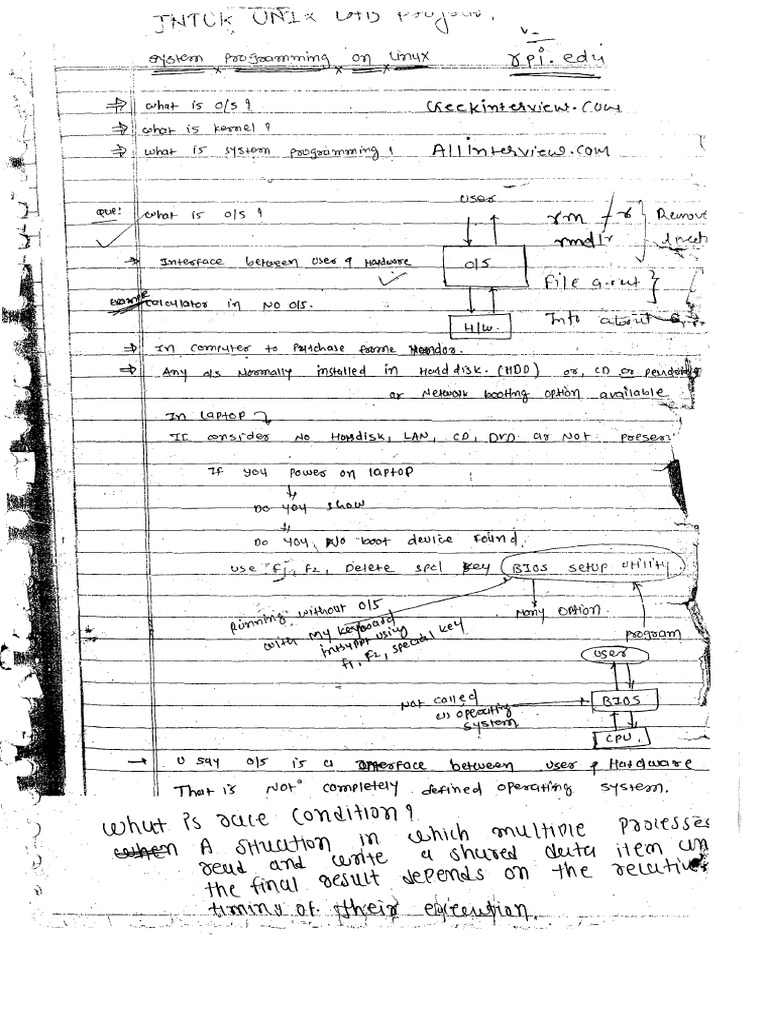 JNTUK UNIX LAB program.
System programming on Linux
rpi.edu
⇒ what is O/S?
Geekinterview.com
⇒ what is kernel?
⇒ what is system programming?
Allinterview.com
Que: what is O/S?
User
O/S
H/W.
rm -r
rmdir
Remove
File a.out
Info about
→ Interface between User & Hardware
Example calculator in No O/S.
⇒ In computer to Purchase frome Vendor.
⇒ Any O/S Normally installed in Hard disk. (HDD) or, CD or pendrive
or Network booting option available
In Laptop
If consider No Hardisk, LAN, CD, DVD ar Not present
If you power on laptop
Do you show
Do you, No boot device found.
use F1, F2, Delete spcl key BIOS setup utility
Running without O/S
with my keyboard
intrupt using
F1, F2, special key
Many option.
program
user
BIOS
CPU.
Not called
as operating
system
→ U say O/S is a interface between user & Hardware
That is Not completely defined operating system.
what is race condition?
A situation in which multiple processes
read and write a shared data item an
the final result depends on the relative
timing of their execution.